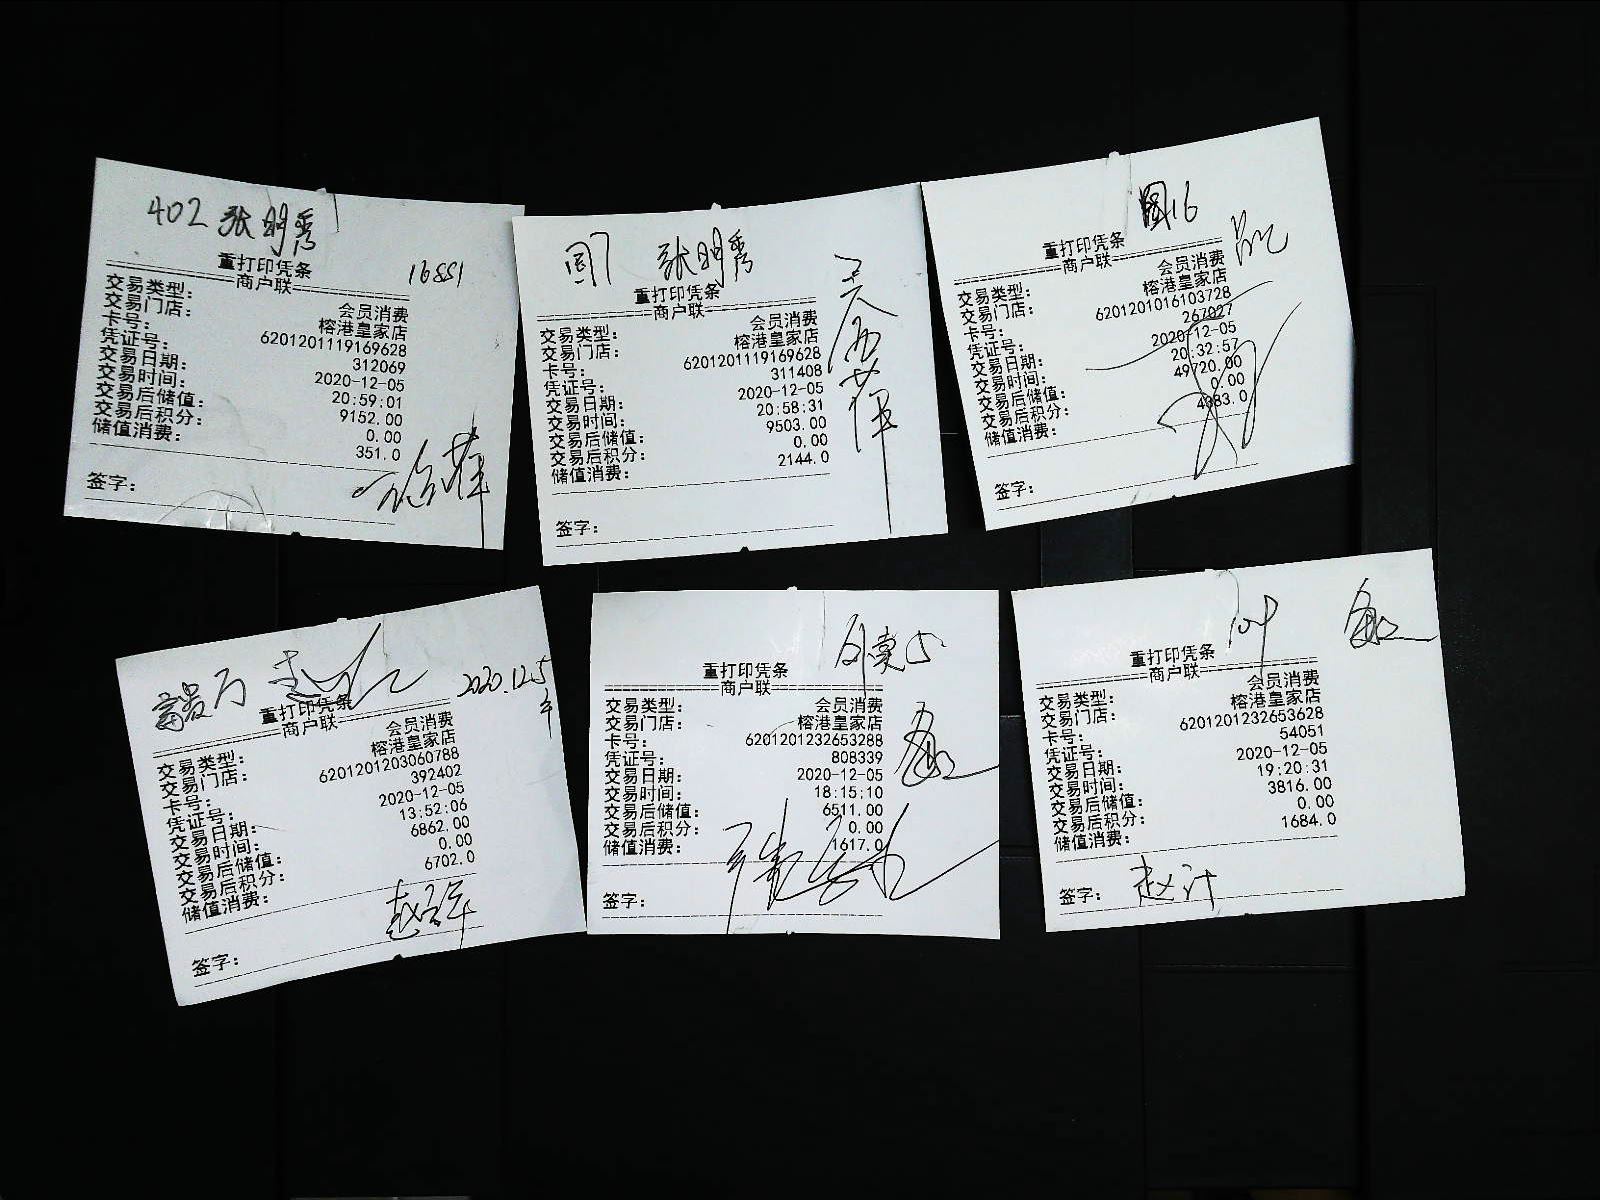 402 张明秀
16881
重打印凭条
商户联
交易类型： 会员消费
交易门店： 榕港皇家店
卡号： 6201201119169628
凭证号： 312069
交易日期： 2020-12-05
交易时间： 20:59:01
交易后储值： 9152.00
交易后积分： 0.00
储值消费： 351.0
签字：
张明秀
重打印凭条
商户联
交易类型： 会员消费
交易门店： 榕港皇家店
卡号： 6201201119169628
凭证号： 311408
交易日期： 2020-12-05
交易时间： 20:58:31
交易后储值： 9503.00
交易后积分： 0.00
储值消费： 2144.0
签字：
16
重打印凭条
商户联
交易类型： 会员消费
交易门店： 榕港皇家店
卡号： 6201201016103728
凭证号： 267027
交易日期： 2020-12-05
交易时间： 20:32:57
交易后储值： 49720.00
交易后积分： 0.00
储值消费： 4383.0
签字：
2020.12.5
重打印凭条
商户联
交易类型： 会员消费
交易门店： 榕港皇家店
卡号： 6201201203060788
凭证号： 392402
交易日期： 2020-12-05
交易时间： 13:52:06
交易后储值： 6862.00
交易后积分： 0.00
储值消费： 6702.0
签字：
重打印凭条
商户联
交易类型： 会员消费
交易门店： 榕港皇家店
卡号： 6201201232653288
凭证号： 808339
交易日期： 2020-12-05
交易时间： 18:15:10
交易后储值： 6511.00
交易后积分： 0.00
储值消费： 1617.0
签字：
重打印凭条
商户联
交易类型： 会员消费
交易门店： 榕港皇家店
卡号： 6201201232653628
凭证号： 54051
交易日期： 2020-12-05
交易时间： 19:20:31
交易后储值： 3816.00
交易后积分： 0.00
储值消费： 1684.0
签字：